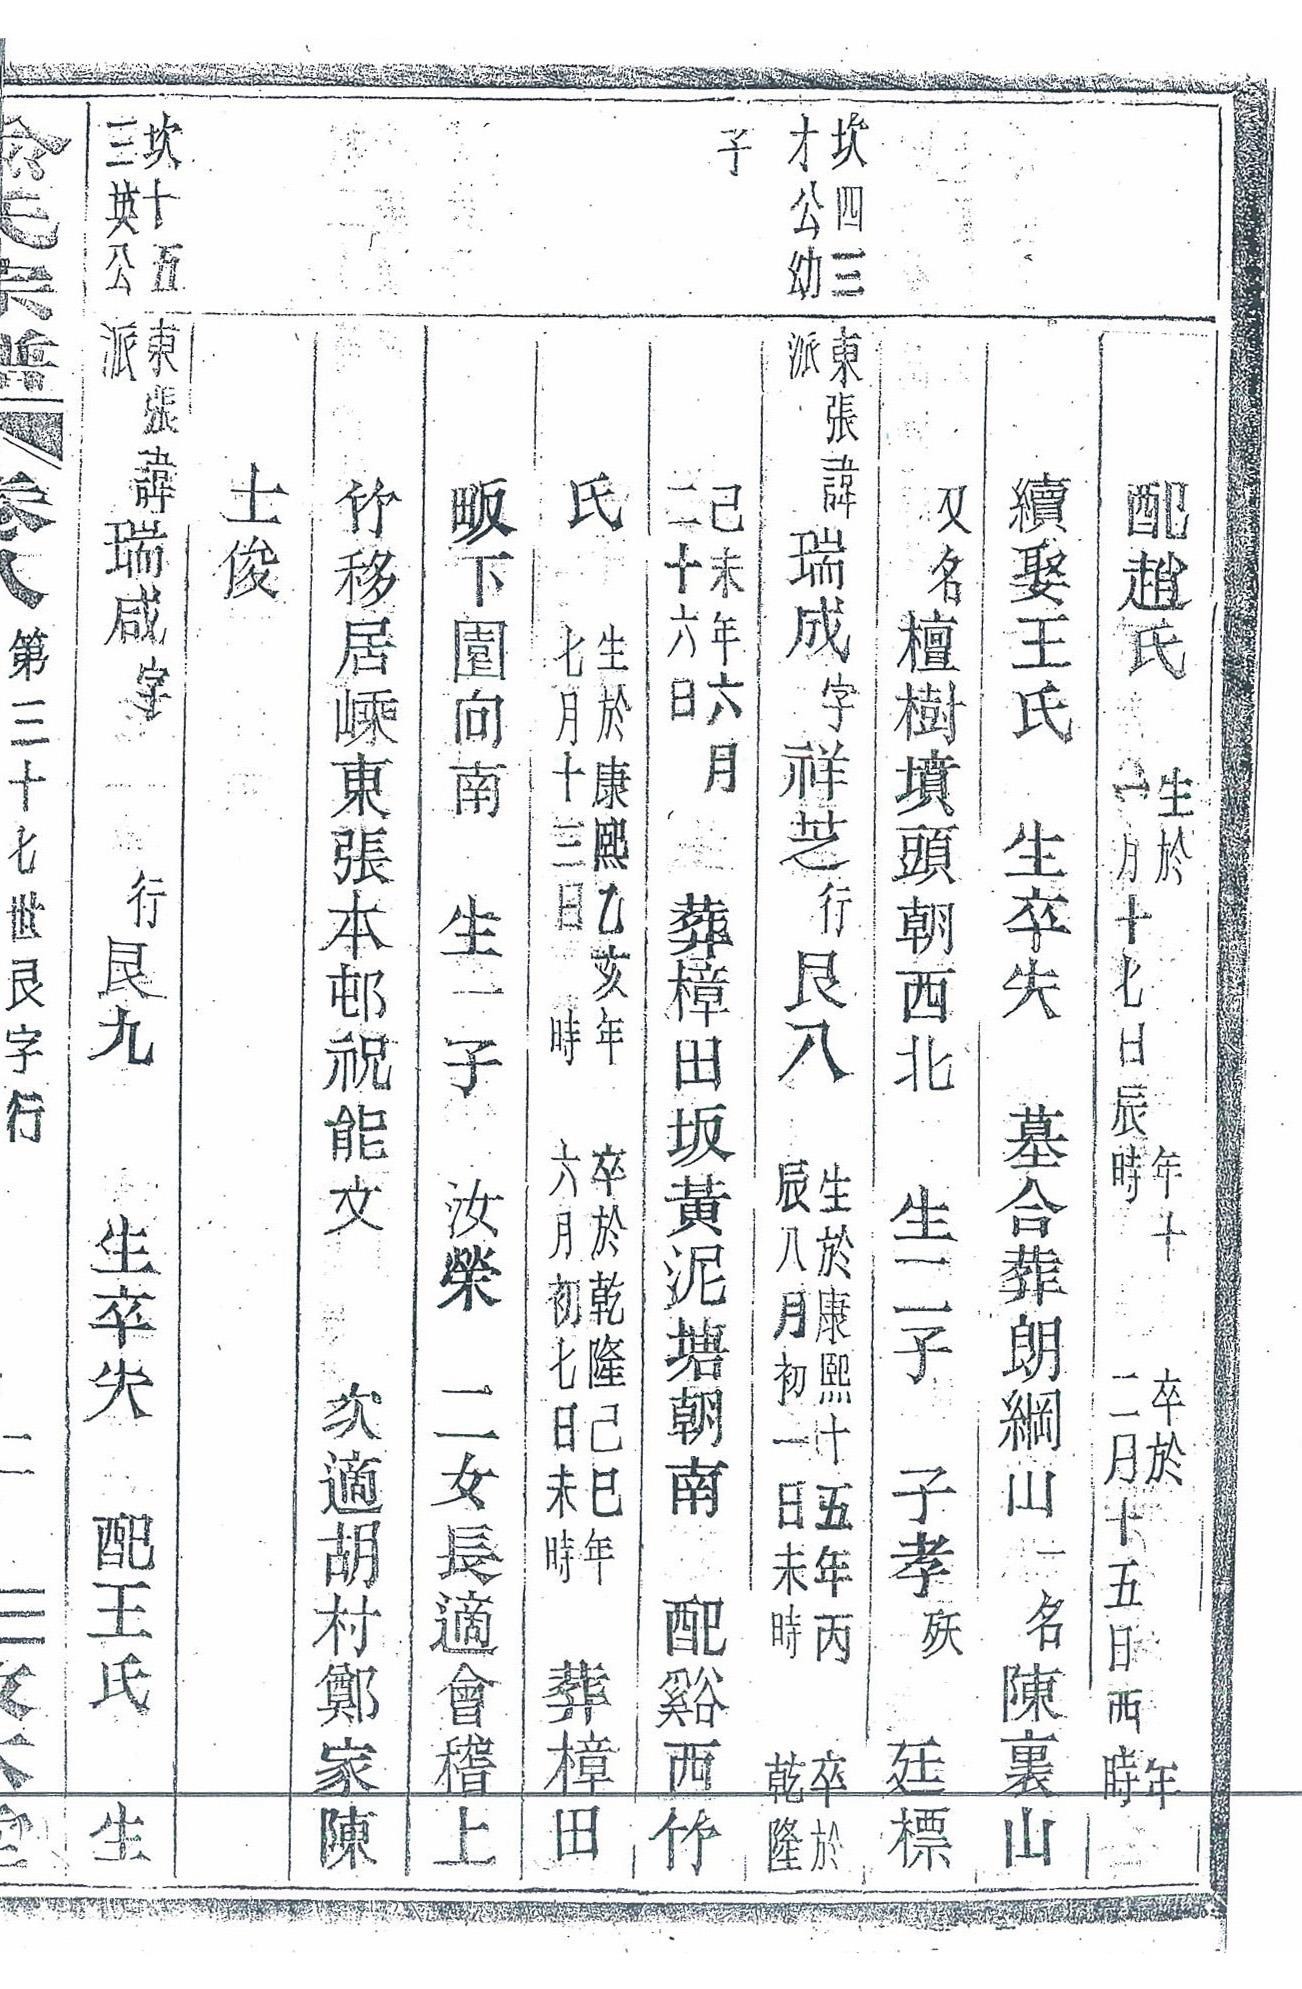 配趙氏 生於 年十一月十七日辰時 卒於 年二月十五日酉時
續娶王氏 生卒失 墓合葬朗綱山一名陳裏山
又名檀樹墳頭朝西北 生二子 子孝殀 廷標
坎四三才公幼子 東張派 諱瑞成字祥芝行艮八 生於康熙十五年丙辰八月初一日未時 卒於乾隆
己未年六月二十六日 葬樟田坂黃泥塘朝南 配谿西竹
氏 生於康熙乙亥年七月十三日 時 卒於乾隆己巳年六月初七日未時 葬樟田
畈下園向南 生一子 汝榮 二女長適會稽上
竹移居嵊東張本邨祝能文 次適胡村鄭家陳
士俊
坎十五三英公 東張派 諱瑞咸字 行艮九 生卒失 配王氏 生
氏宗譜 卷八 第三十七世艮字行